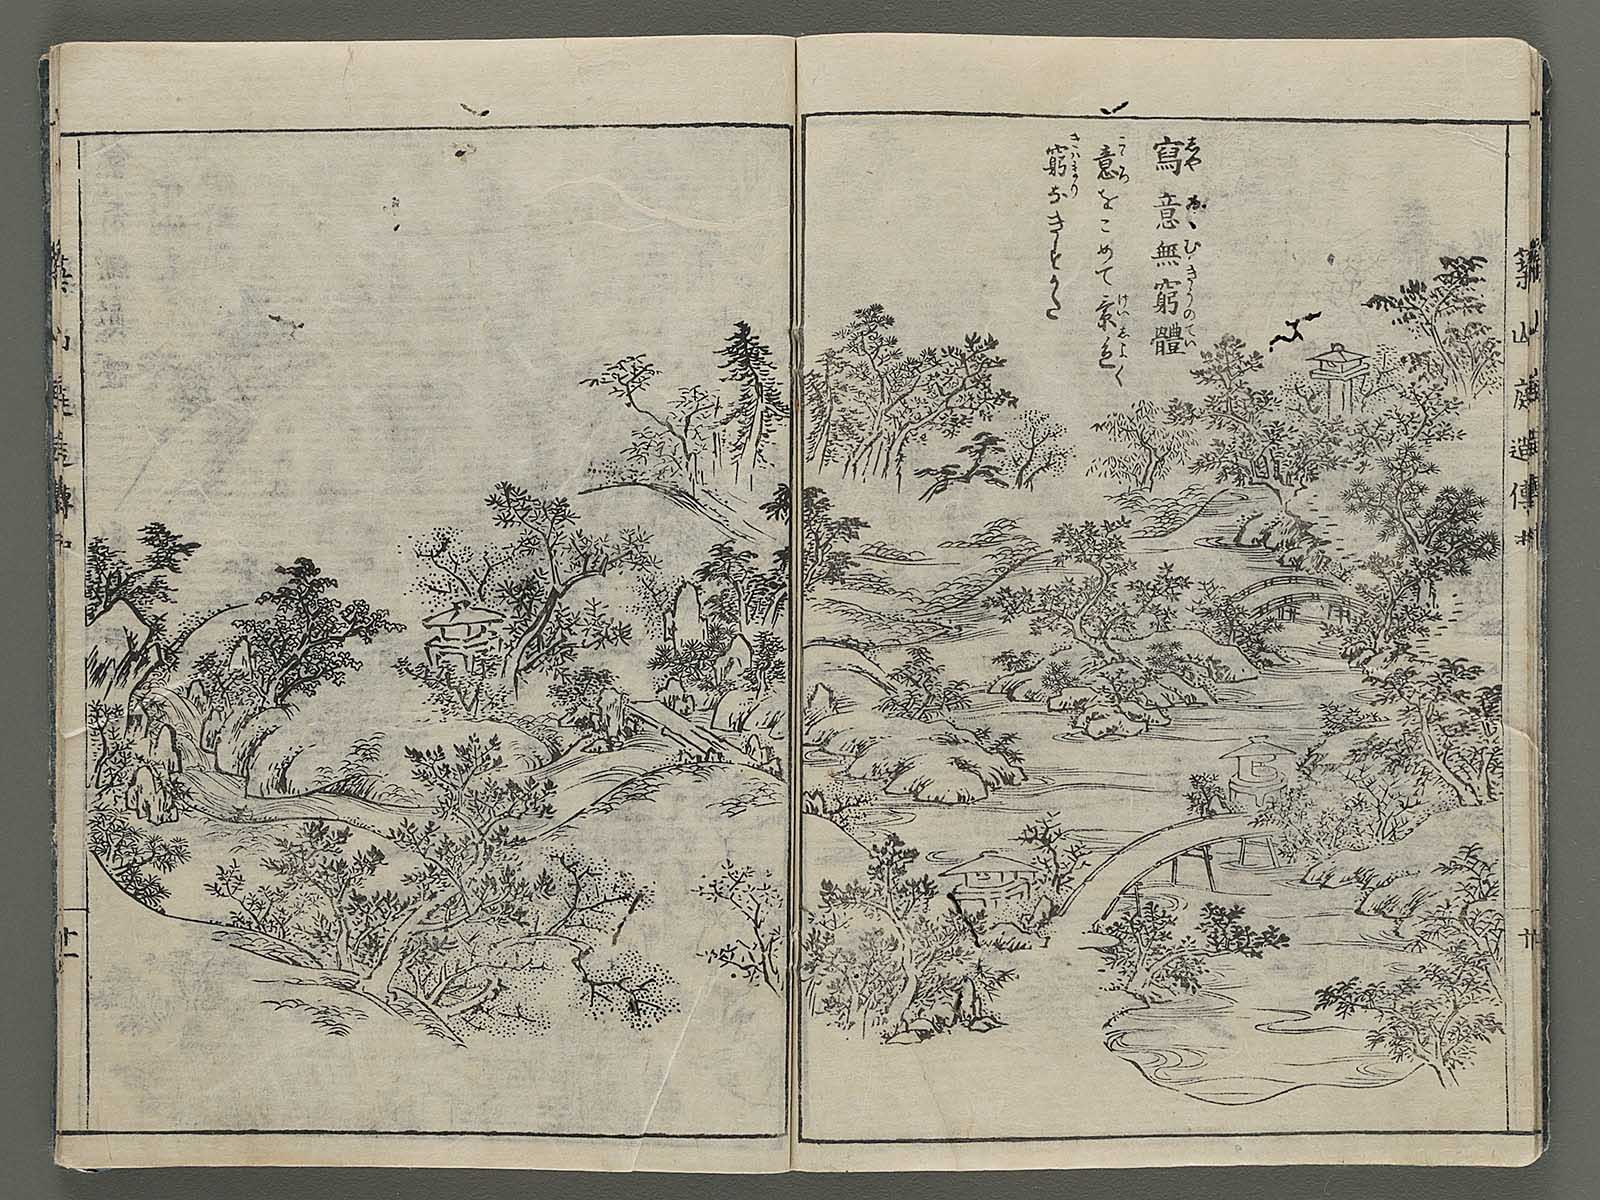 寫意無窮體
しやいむきうのてい
意をこめて景色よく
こゝろ
けい
窮なきすかた
きハまり
築山庭造傳
十
築山庭造傳
十一